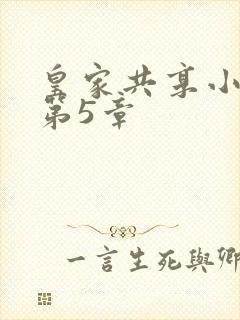 皇家共享小
第5章
一言生死與卿